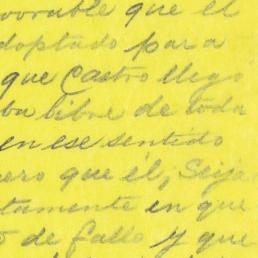 vorable que el
doptado para
que Castro llego
ba libre de toda
en ese sentido
ero que él, Seija
tamente en que
de fallo y que